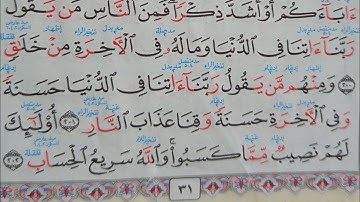 ءَابَآءَكُمْ أَوْ أَشَدَّ ذِكْرًا فَمِنَ النَّاسِ مَنْ يَقُولُ
رَبَّنَآ ءَاتِنَا فِى الدُّنْيَا وَمَا لَهُ فِى الْأَخِرَةِ مِنْ خَلَٰقٍ
﴿٢٠٠﴾ وَمِنْهُم مَّن يَقُولُ رَبَّنَآ ءَاتِنَا فِى الدُّنْيَا حَسَنَةً
وَفِى الْأَخِرَةِ حَسَنَةً وَقِنَا عَذَابَ النَّارِ ﴿٢٠١﴾ أُولَٰٓئِكَ
لَهُمْ نَصِيبٌ مِّمَّا كَسَبُوا وَاللَّهُ سَرِيعُ الْحِسَابِ ﴿٢٠٢﴾
٣١